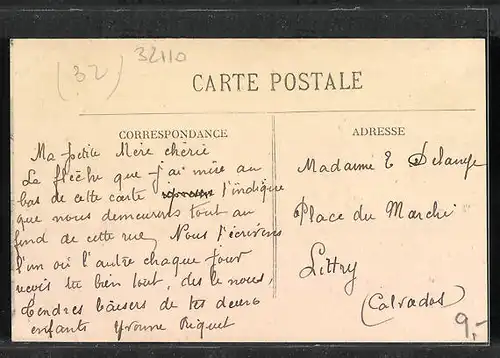 (32)
32110
CARTE POSTALE
CORRESPONDANCE
Ma petite Mère chérie
La flèche que j'ai mise au
bas de cette carte t'indique
que nous demeurons tout au
fond de cette rue, Nous t'écrivons
l'un où l'autre chaque jour
reçois tu bien tout, dès le nous,
tendres baisers de tes deux
enfants Yvonne Riquet
ADRESSE
Madame E Delange
Place du Marché
Littry
(Calvados)
9,-